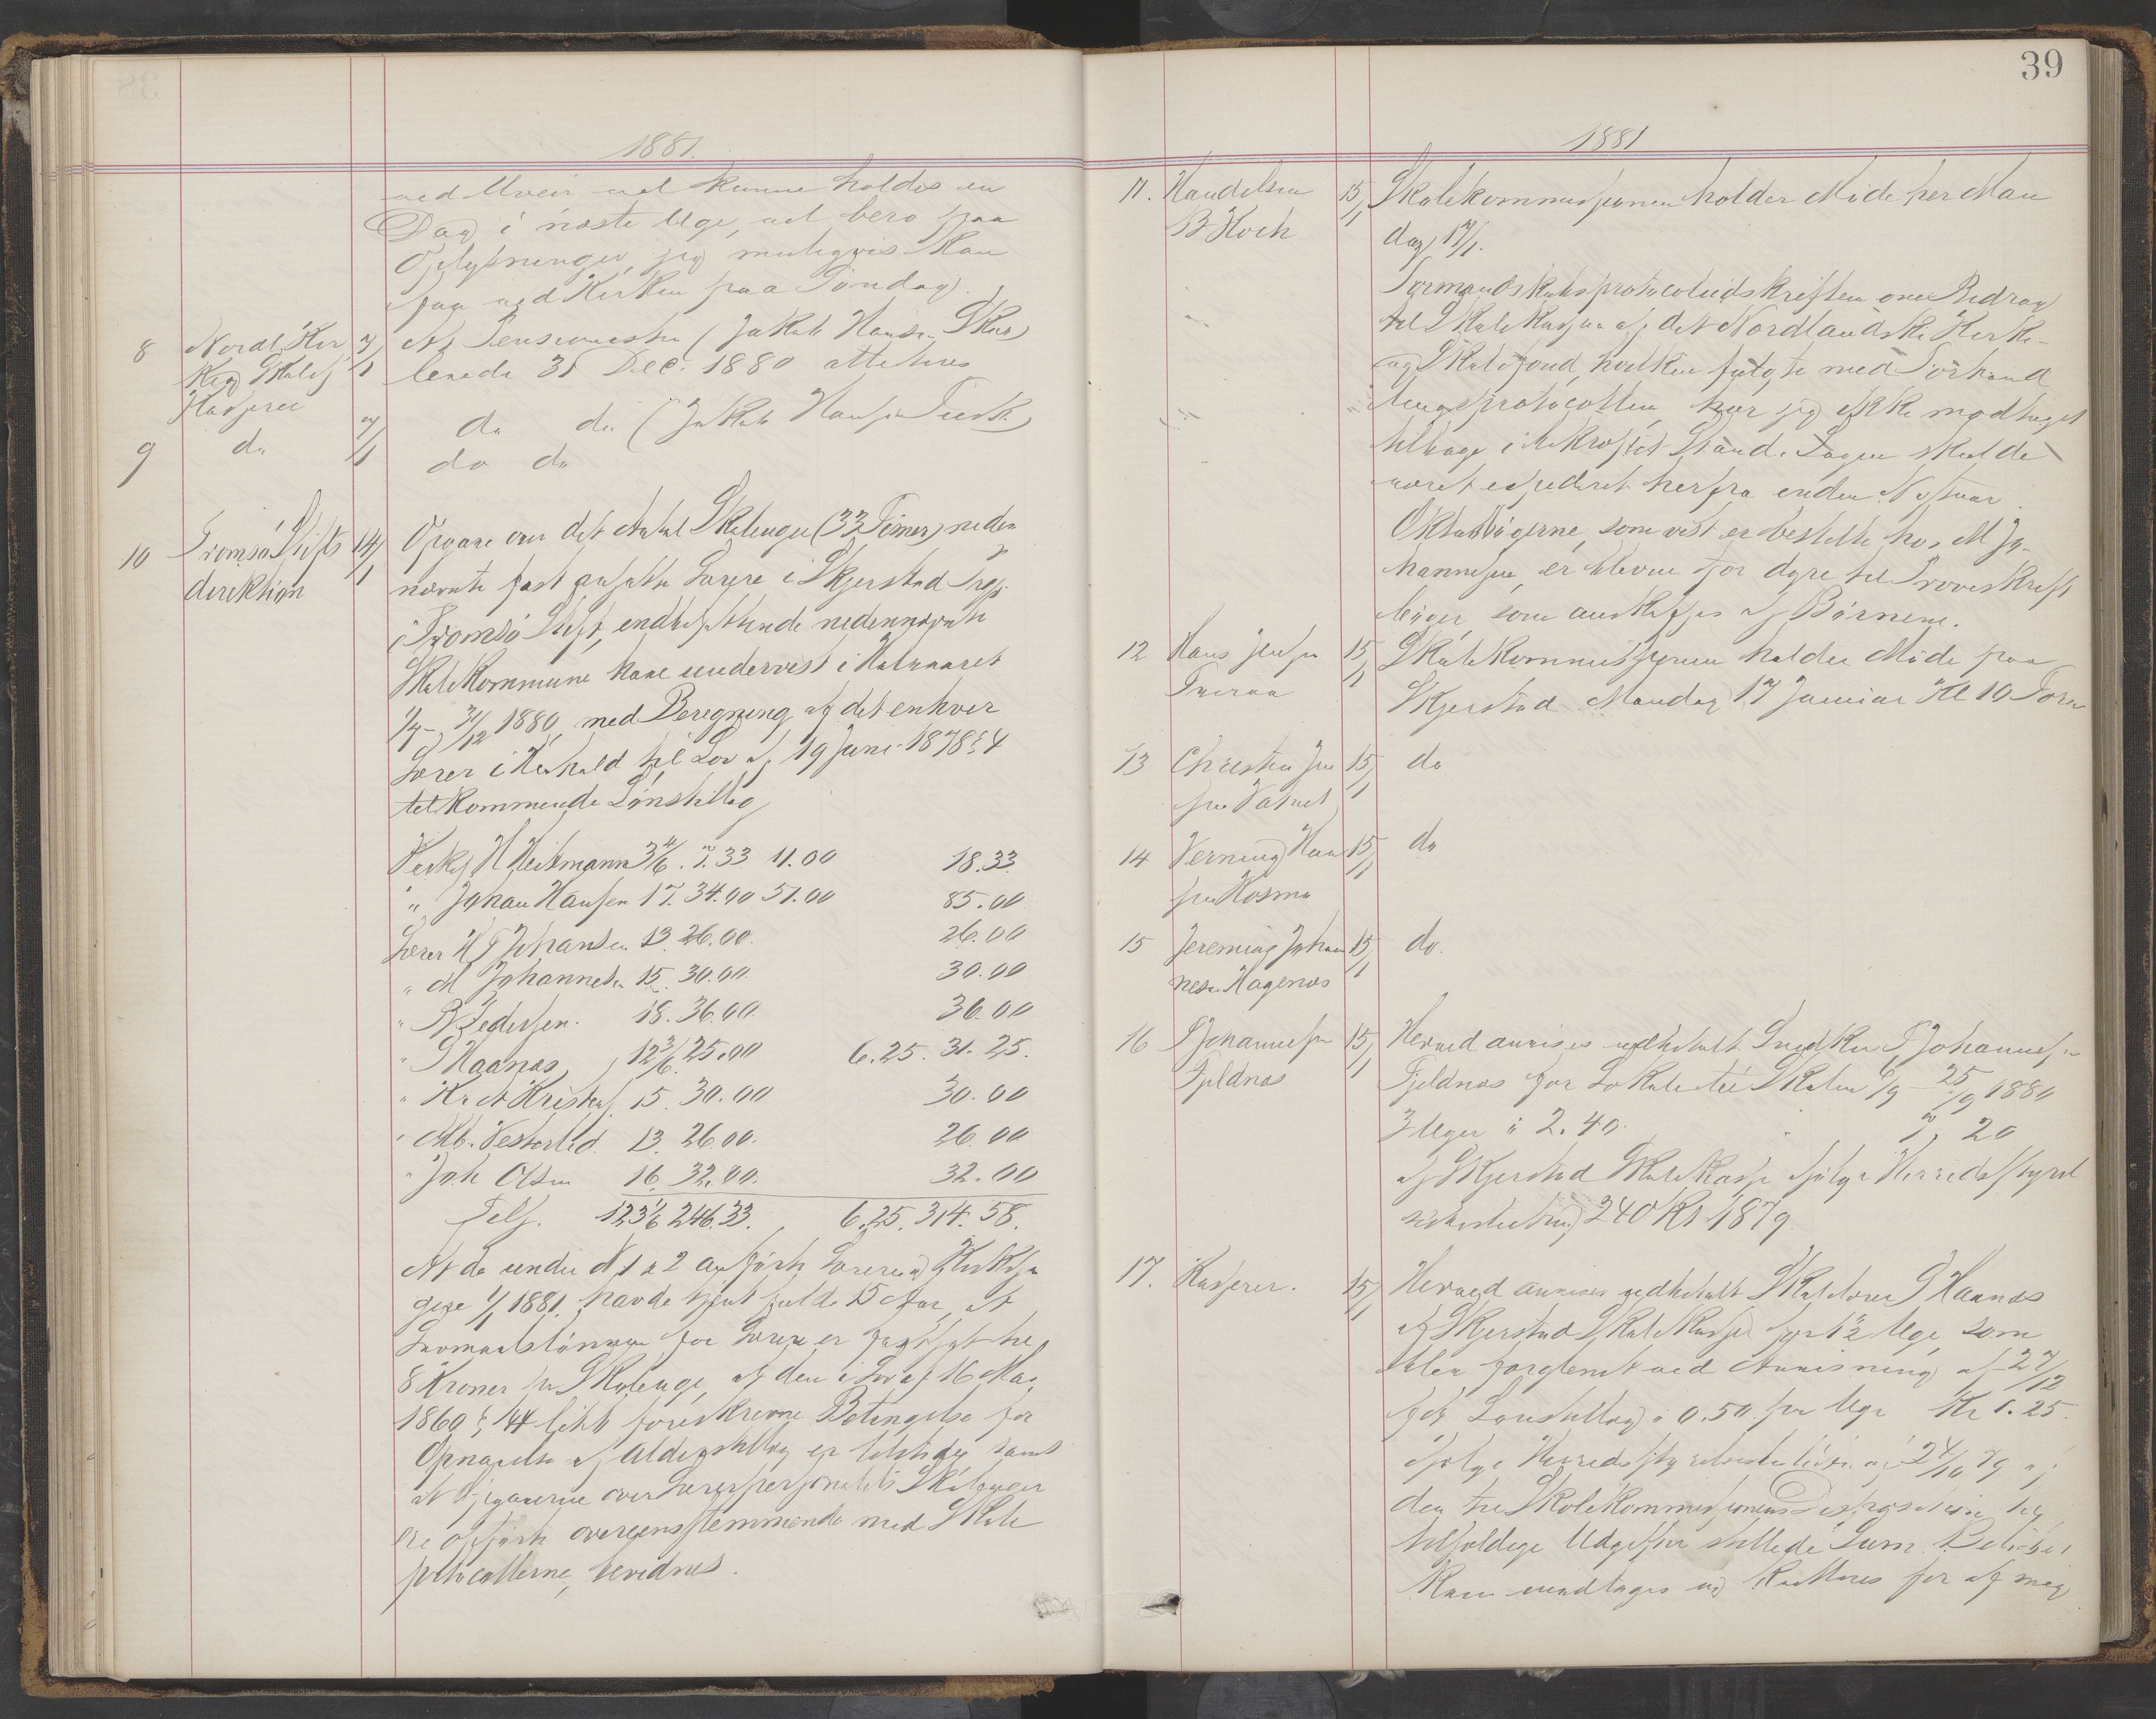 1881.
ved Uveir vel kunne holdes en
Dag i næste Uge, vel bero paa
Oplysninger, jeg muligvis kan
faa ved Kirken paa Søndag.
8 Nordl. Kir 7/1 At Pensionisten (Jakob Hansen
ke og Skolef levede 31 Dec. 1880 attesteres
Kasserer
9 do 7/1 do do (Jakob Hansen
do do
10 Tromsø Stifts 14/1 Opgave over det Antal Skoleuger (33 Timer) neden
direktion nævnte fast ansatte Lærere i Skjerstad Præstegj
i Tromsø Stift, nedennævnte
Skolekommune have undervist i Halvaaret
1/7 - 31/12 1880, med Beregning af det enhver
Lærer i Henhold til Lov af 19 Juni 1878 § 4
tilkommende Lønstillæg
Kirks. H Heitmann 3 4/6 . 7.33 11.00 18.33
" Johan Hansen 17. 34.00 51.00 85.00
Lærer H J Johansen 13. 26.00. 26.00
" M Johannesen 15. 30.00. 30.00
" P Pedersen. 18. 36.00. 36.00
" P Haanæs 12 3/6. 25.00 6.25. 31.25.
" K. A Kristens. 15. 30.00 30.00
" Alb. Vesterlid 13. 26.00. 26.00
" Joh Olsen 16. 32.00. 32.00
Tels. 123 1/6 246.33. 6.25. 314.58.
At de under N 1 a 2 anførte Lærere og Kirkesan
gere 1/1 1881 havde tjent fulde 15 Aar, at
for Lærere er fastsat til
8 Kroner pr Skoleuge, af den i Lov af 16 Mai
1860 § 44 foreskrevne Betingelse for
Opnaaelse af Alderstillæg er tilstede samt
at Opgaverne over Lærerpersonalets Skoleuger
ere opførte overensstemmende med Skole
protocollerne, bevidnes.
39
1881
11. Handelsm 15/1 Skolekommissionen holder Møde her Man
B Koch dag 17/1.
Formandskabsprotocoludskriften over Bidrag
til Skolekassen af det Nordlandske Kirke-
og Skolefond, hvilken fulgte med Forhand
lingsprotocollen, har jeg ikke modtaget
tilbage i bekræftet Stand. Sagen skulde
været expederet herfra inden Nytaar.
Oktavbøgerne, som vist er bestilte hos M Jo-
hannesen, er blevne for dyre til Prøveskrift
bøger, som anskaffes af Børnene.
12 Hans Jensen 15/1 Skolekommissionen holder Møde paa
Tueraa Skjerstad Mandag 17 Januar Kl 10 Form
13 Christen Jen 15/1 do
sen Vatnet
14 Verning Han 15/1 do
sen Kosmo
15 Jeremias Johan 15/1 do.
nesen Hagenæs
16 P Johannesen 15/1 Herved anvises udbetalt P Johannesen
Fjeldnæs Fjeldnæs for Lokale til Skolen 6/9 - 25/9 1880
3 Uger à 2.40. 7, 20
af Skjerstad Skolekasse ifølge Herredsstyrel
240 Kr 1879.
17. Kasserer. 15/1 Herved anvises udbetalt Skolelærer P Haanæs
af Skjerstad Skolekasse for 12 1/2 Uge, som
blev forglemt ved Anvisning af 27/12
Lønstillæg à 0.50. pr Uge Kr 6.25.
ifølge Herredsstyrelsesbeslutning af 24/10 79 af
den til Skolekommissionens Disposition til
tilfældige Udgifter stillede Sum. Beløbet
kan modtages og kvitteres for af mig